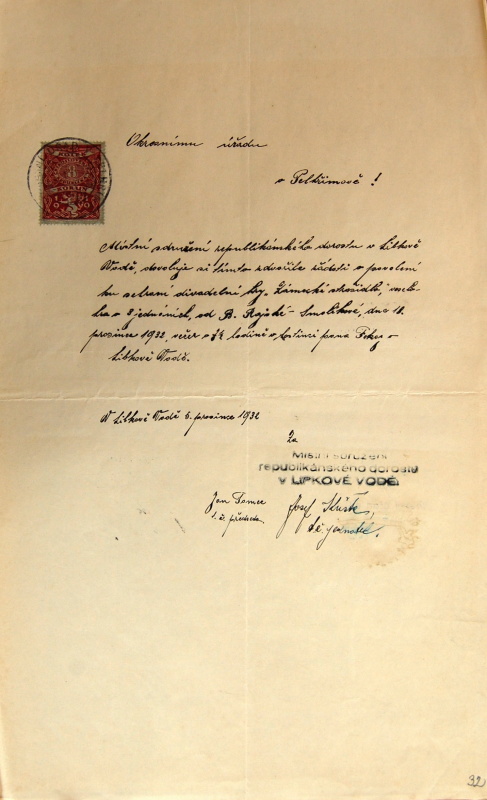 Okresnímu úřadu
v Pelhřimově!
Místní sdružení republikánského dorostu v Lipkově
Vodě, dovoluje si tímto zdvořile žádati o povolení
ku sehraní divadelní hry. Zámecké strašidlo, veselo-
hra o 3 jednáních, od B. Rajské-Smolíkové, dne 18.
prosince 1932, večer v hodině v hostinci pana v
Lipkově Vodě.
V Lipkově Vodě 5. prosince 1932
Za
Místní sdružení
republikánského dorostu
V LIPKOVÉ VODĚ.
Jan
t. č. předseda.
Josef
t. č. jednatel.
32